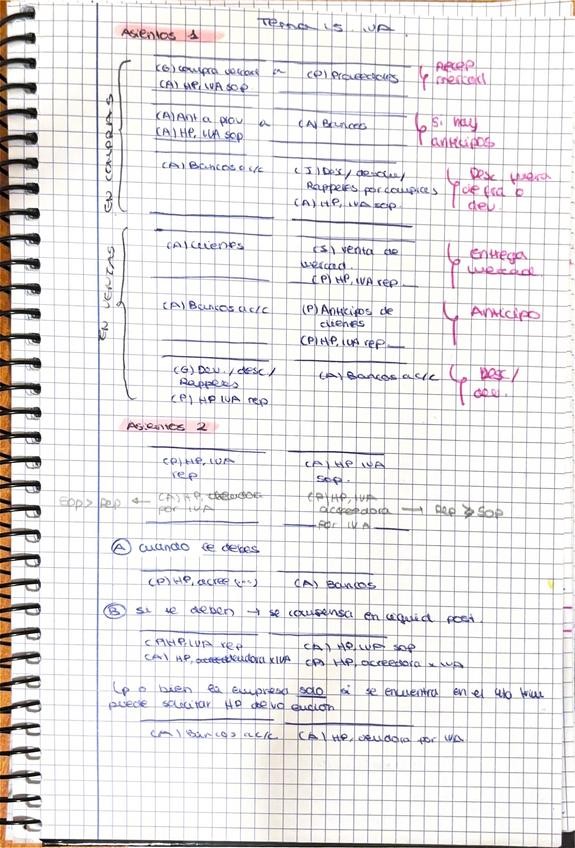 Tema 15. IVA.
Asientos 1
EN COMPRAS
(G) compra mercad a (P) Proveedores
(A) HP, IVA sop
Recep mercad
(A) Ant a prov a (A) Bancos
(A) HP, IVA sop
si hay anticipos
(A) Bancos a c/c (I) Desc/ devoluc/
Rappeles por compras
(A) HP, IVA sop
Desc fuera
de fra o
dev.
EN VENTAS
(A) Clientes (I) venta de
mercad.
(P) HP, IVA rep
Entrega
mercad
(A) Bancos a c/c (P) Anticipos de
clientes
(P) HP, IVA rep
Anticipo
(G) Dev./ desc/ (A) Bancos a c/c
Rappeles
(P) HP IVA rep
Desc/
dev.
Asientos 2
(P) HP, IVA (A) HP IVA
rep sop.
sop > rep ← (A) HP, deudora (P) HP, IVA
por IVA acreedora → rep > sop
por IVA
(A) cuando se debes
(P) HP, acree (...) (A) Bancos
(B) si te deben → se compensa en liquid post.
(P) HP, IVA rep (A) HP, IVA sop
(A) HP, deudora x IVA (P) HP, acreedora x IVA
o bien la empresa solo si se encuentra en el 4to trim
puede solicitar HP devolución
(A) Bancos a c/c (A) HP, deudora por IVA